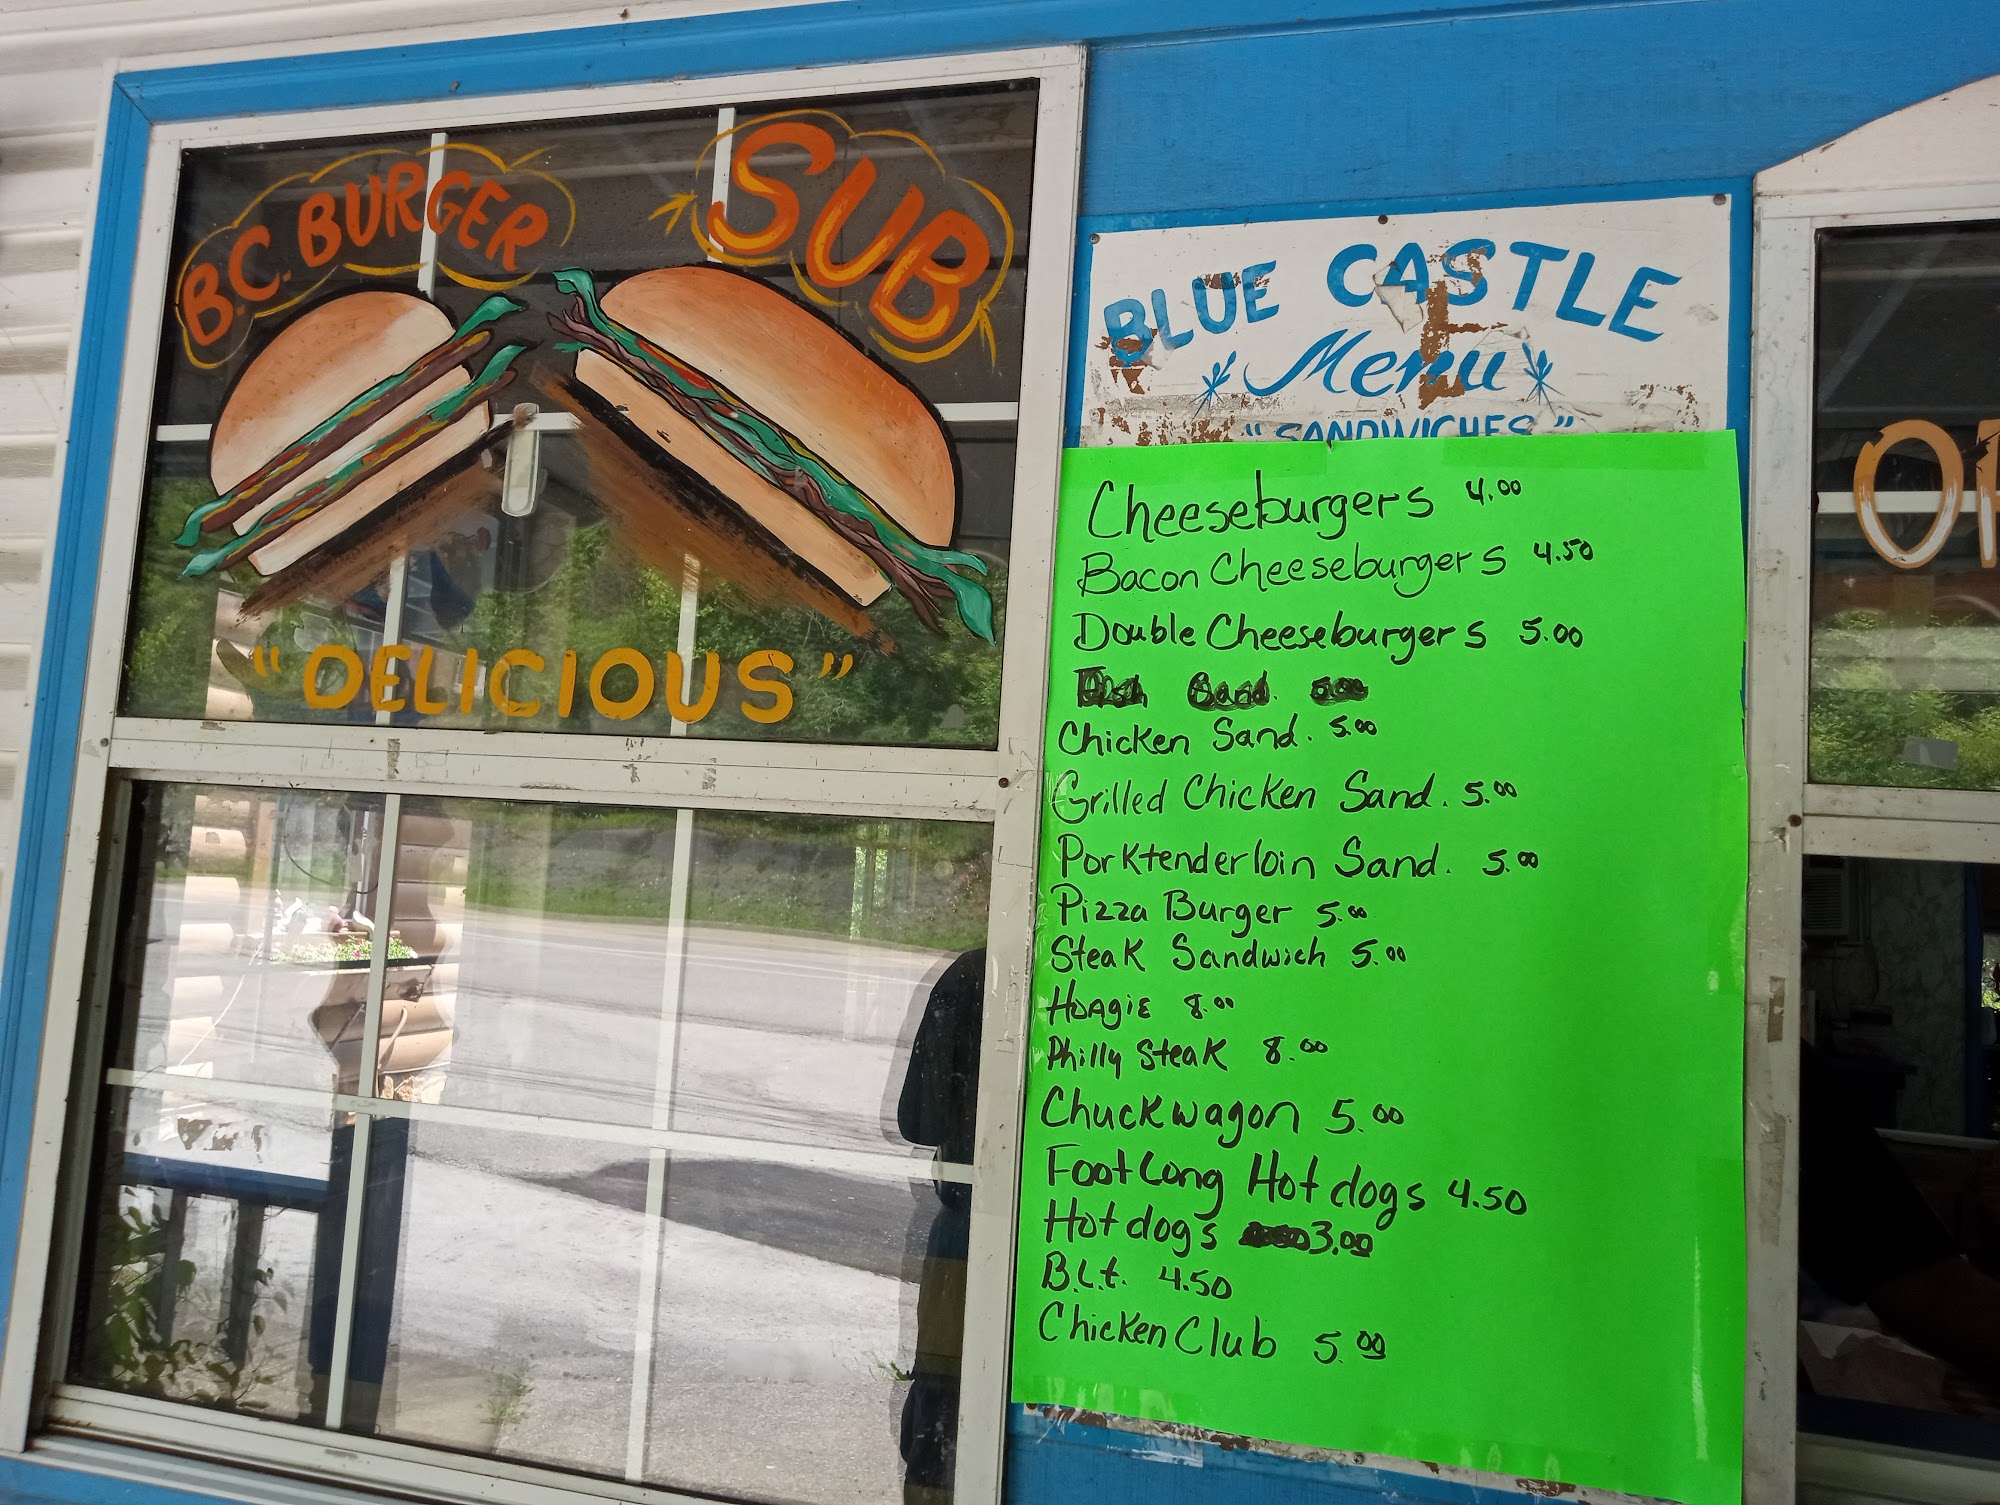 B.C. BURGER
SUB
"DELICIOUS"
BLUE CASTLE
Menu
"SANDWICHES"
Cheeseburgers 4.00
Bacon Cheeseburgers 4.50
Double Cheeseburgers 5.00
Chicken Sand. 5.00
Grilled Chicken Sand. 5.00
Porktenderloin Sand. 5.00
Pizza Burger 5.00
Steak Sandwich 5.00
Hoagie 8.00
Philly Steak 8.00
Chuckwagon 5.00
Foot Long Hot dogs 4.50
Hot dogs 3.00
B.L.t. 4.50
Chicken Club 5.00